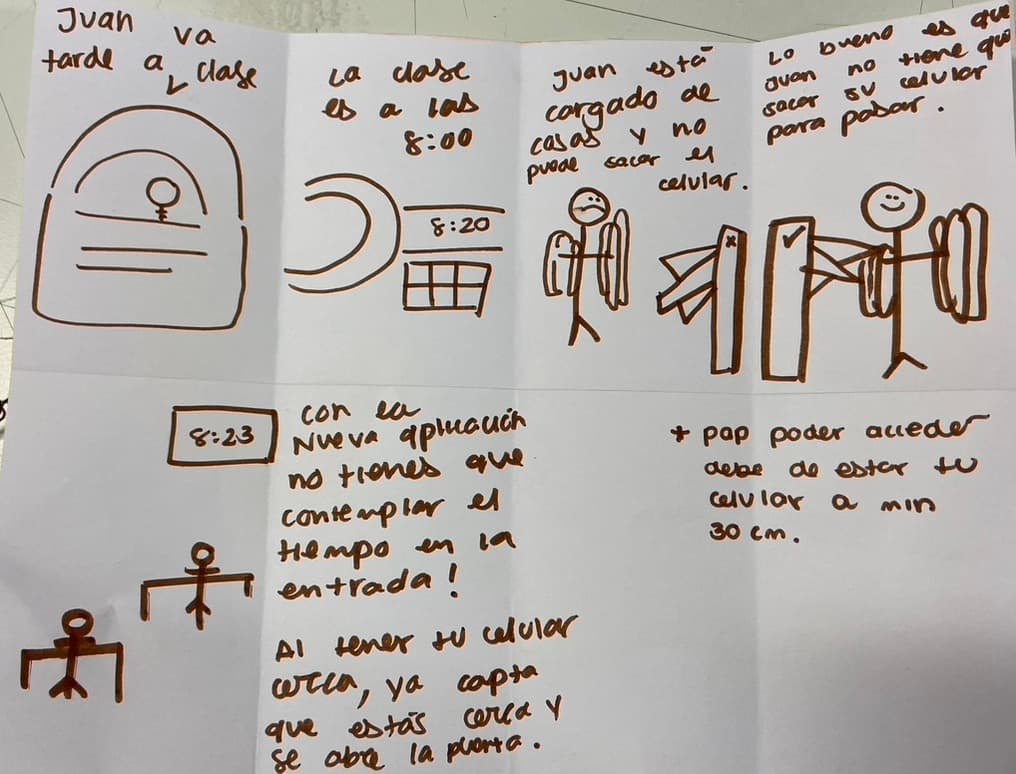 Juan va
tarde a clase
La clase
es a las
8:00
8:20
Juan está
cargado de
cosas y no
puede sacar el
celular.
Lo bueno es que
Juan no tiene que
sacar su celular
para pasar.
8:23
con la
Nueva aplicación
no tienes que
contemplar el
tiempo en la
entrada!
Al tener tu celular
cerca, ya capta
que estás cerca y
se abre la puerta.
* pap poder acceder
debe de estar tu
celular a min
30 cm.